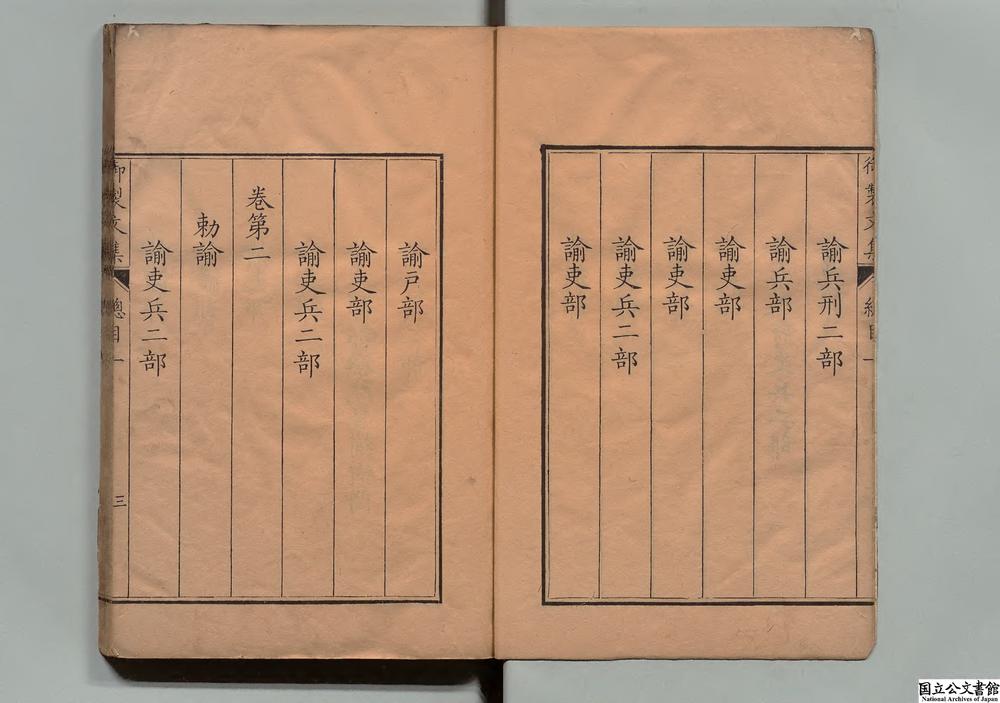 御製文集
總目一
諭兵刑二部
諭兵部
諭吏部
諭吏部
諭吏兵二部
諭吏部
諭戸部
諭吏部
諭吏兵二部
卷第二
勅諭
諭吏兵二部
御製文集
總目一
三
国立公文書館
National Archives of Japan